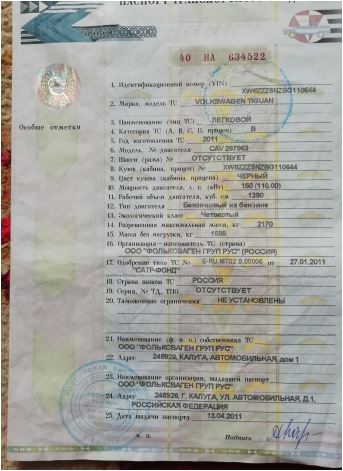 40 НА 634522
1. Идентификационный номер (VIN) XW8ZZZ5NZBG110644
2. Марка, модель ТС VOLKSWAGEN TIGUAN
3. Наименование (тип ТС) ЛЕГКОВОЙ
Особые отметки
4. Категория ТС (A, B, C, D, прицеп) B
5. Год изготовления ТС 2011
6. Модель, № двигателя CAV 297963
7. Шасси (рама) № ОТСУТСТВУЕТ
8. Кузов (кабина, прицеп) № XW8ZZZ5NZBG110644
9. Цвет кузова (кабины, прицепа) ЧЕРНЫЙ
10. Мощность двигателя, л. с. (кВт) 150 (110.00)
11. Рабочий объем двигателя, куб. см 1390
12. Тип двигателя Бензиновый на бензине
13. Экологический класс Четвертый
14. Разрешенная максимальная масса, кг 2170
15. Масса без нагрузки, кг 1589
16. Организация–изготовитель ТС (страна)
ООО "ФОЛЬКСВАГЕН ГРУП РУС" (РОССИЯ)
17. Одобрение типа ТС № E-RU.MT02.B.00006 от 27.01.2011
"САТР-ФОНД"
18. Страна вывоза ТС РОССИЯ
19. Серия, № ТД, ТПО ОТСУТСТВУЕТ
20. Таможенные ограничения НЕ УСТАНОВЛЕНЫ
21. Наименование (ф. и. о.) собственника ТС
ООО "ФОЛЬКСВАГЕН ГРУП РУС"
22. Адрес 248926, КАЛУГА, АВТОМОБИЛЬНАЯ, дом 1
23. Наименование организации, выдавшей паспорт
ООО "ФОЛЬКСВАГЕН ГРУП РУС"
24. Адрес 248926, Г. КАЛУГА, УЛ. АВТОМОБИЛЬНАЯ, Д.1,
РОССИЙСКАЯ ФЕДЕРАЦИЯ
25. Дата выдачи паспорта 13.04.2011
М. П. Подпись